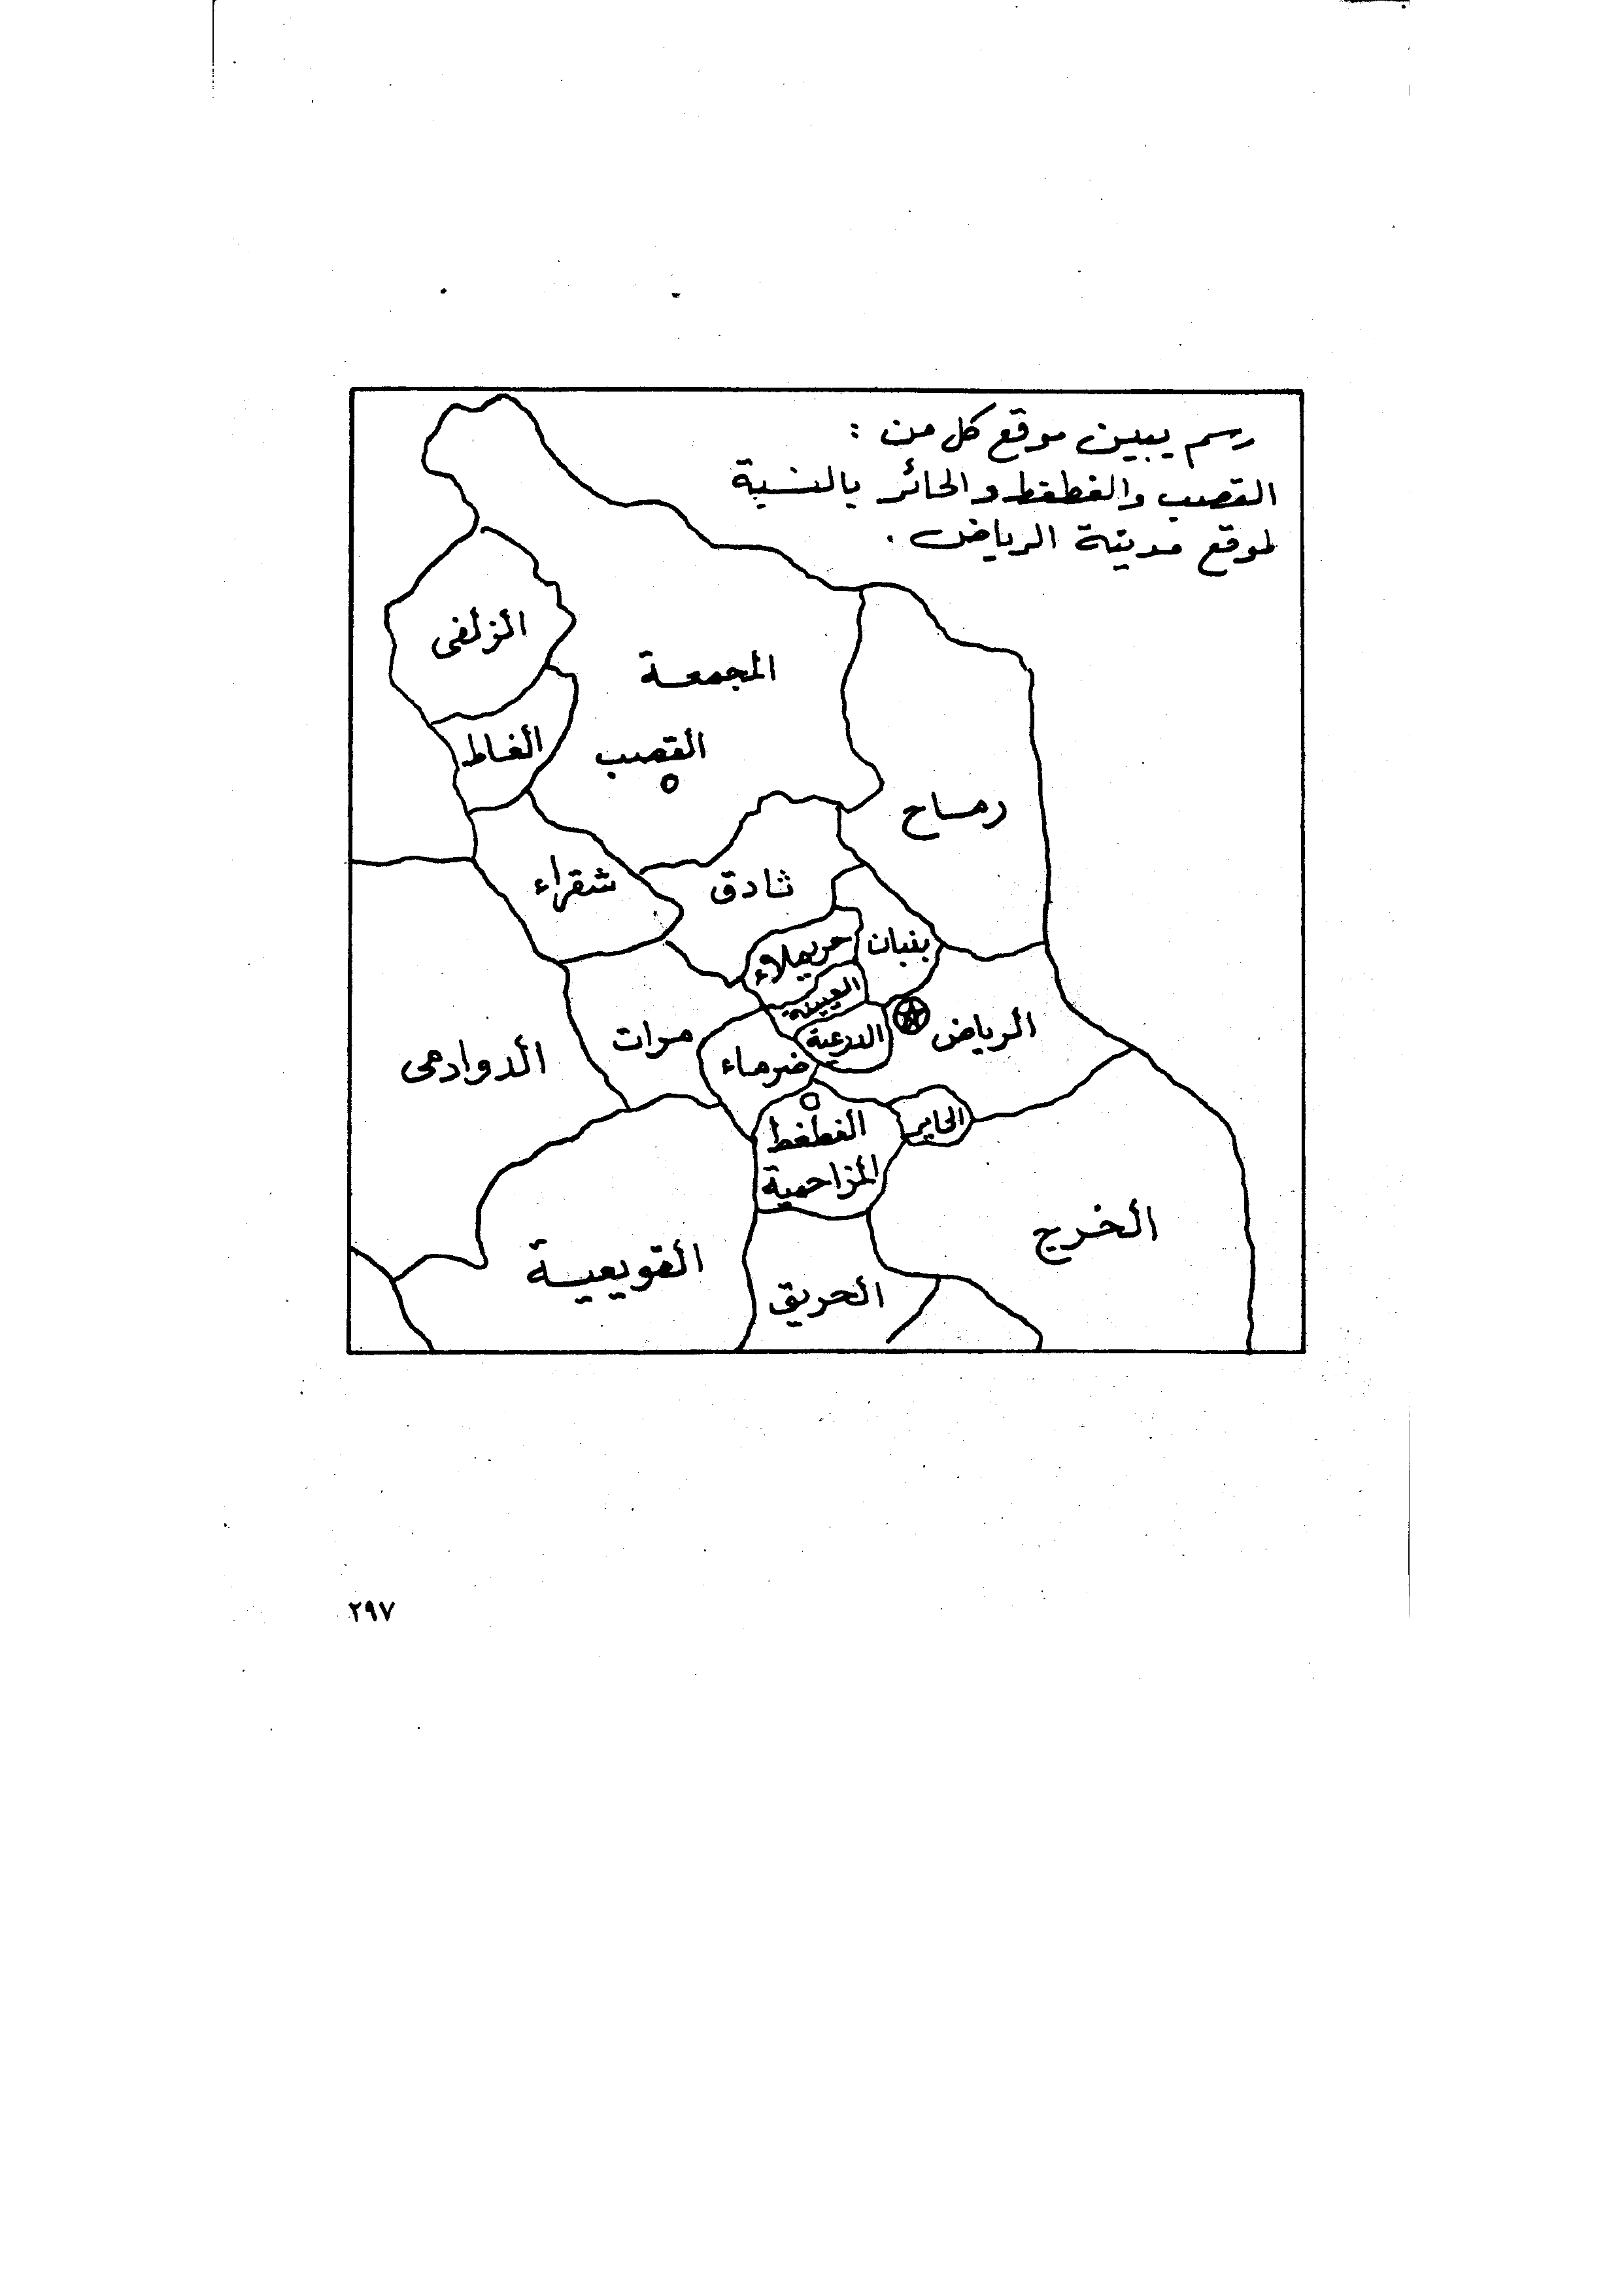 رسم يبين موقع كل من :
القصب والغطغط والحائر بالنسبة
لموقع مدينة الرياض .
الزلفى
المجمعة
الغاط
القصب
رماح
شقراء
ثادق
حريملاء
بنبان
العيينة
الرياض
مرات
الدرعية
ضرماء
الدوادمى
الغطغط
الحاير
المزاحمية
الخرج
القويعية
الحريق
٢٩٧